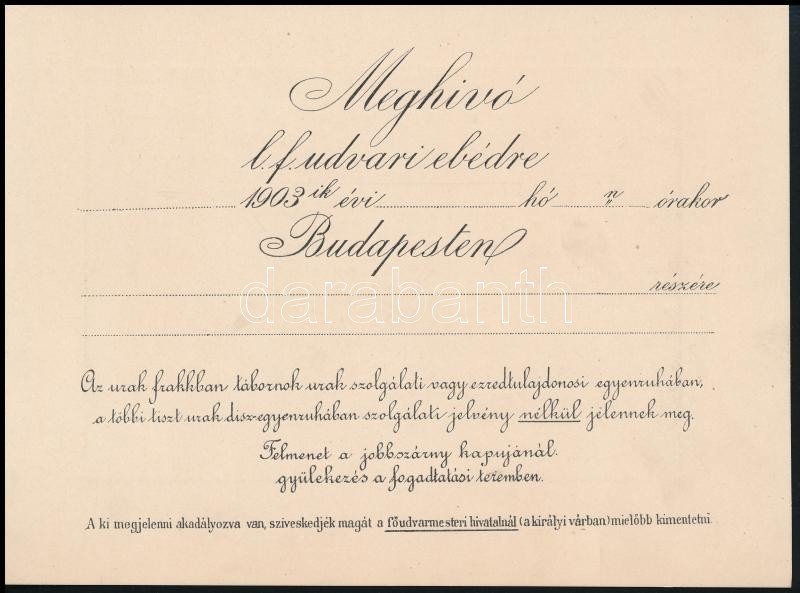 Meghivó
l. f. udvari ebédre
1903 ik évi hó n órakor
Budapesten
darabanth
részére
Az urak frakkban tábornok urak szolgálati vagy ezredtulajdonosi egyenruhában,
a többi tiszt urak disz-egyenruhában szolgálati jelvény nélkül jelennek meg.
Felmenet a jobbszárny kapujánál.
gyülekezés a fogadtatási teremben.
A ki megjelenni akadályozva van, sziveskedjék magát a főudvarmesteri hivatalnál (a királyi várban) mielőbb kimentetni.